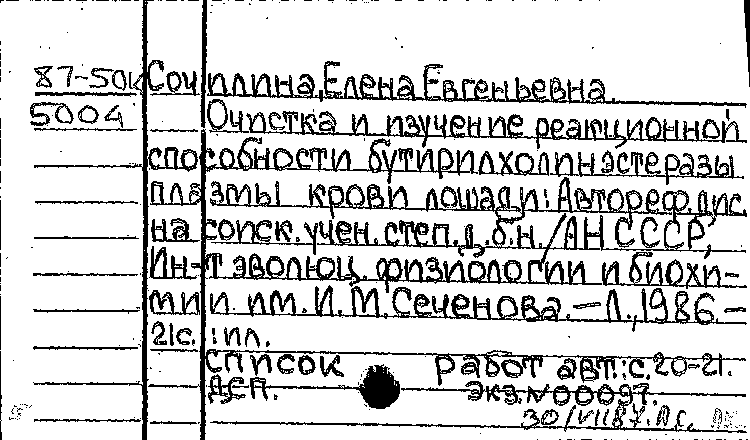 87-50к Сочилина, Елена Евгеньевна.
5004 Очистка и изучение реакционной
способности бутирилхолинэстеразы
плазмы крови лошади: Автореф. дис.
на соиск. учен. степ. д. б. н. /АН СССР,
Ин-т эволюц. физиологии и биохи-
мии им. И. М. Сеченова. — Л., 1986. —
21с. : ил.
Список работ авт.: с. 20-21.
ДСП. Экз. №00097.
30/VII 87.